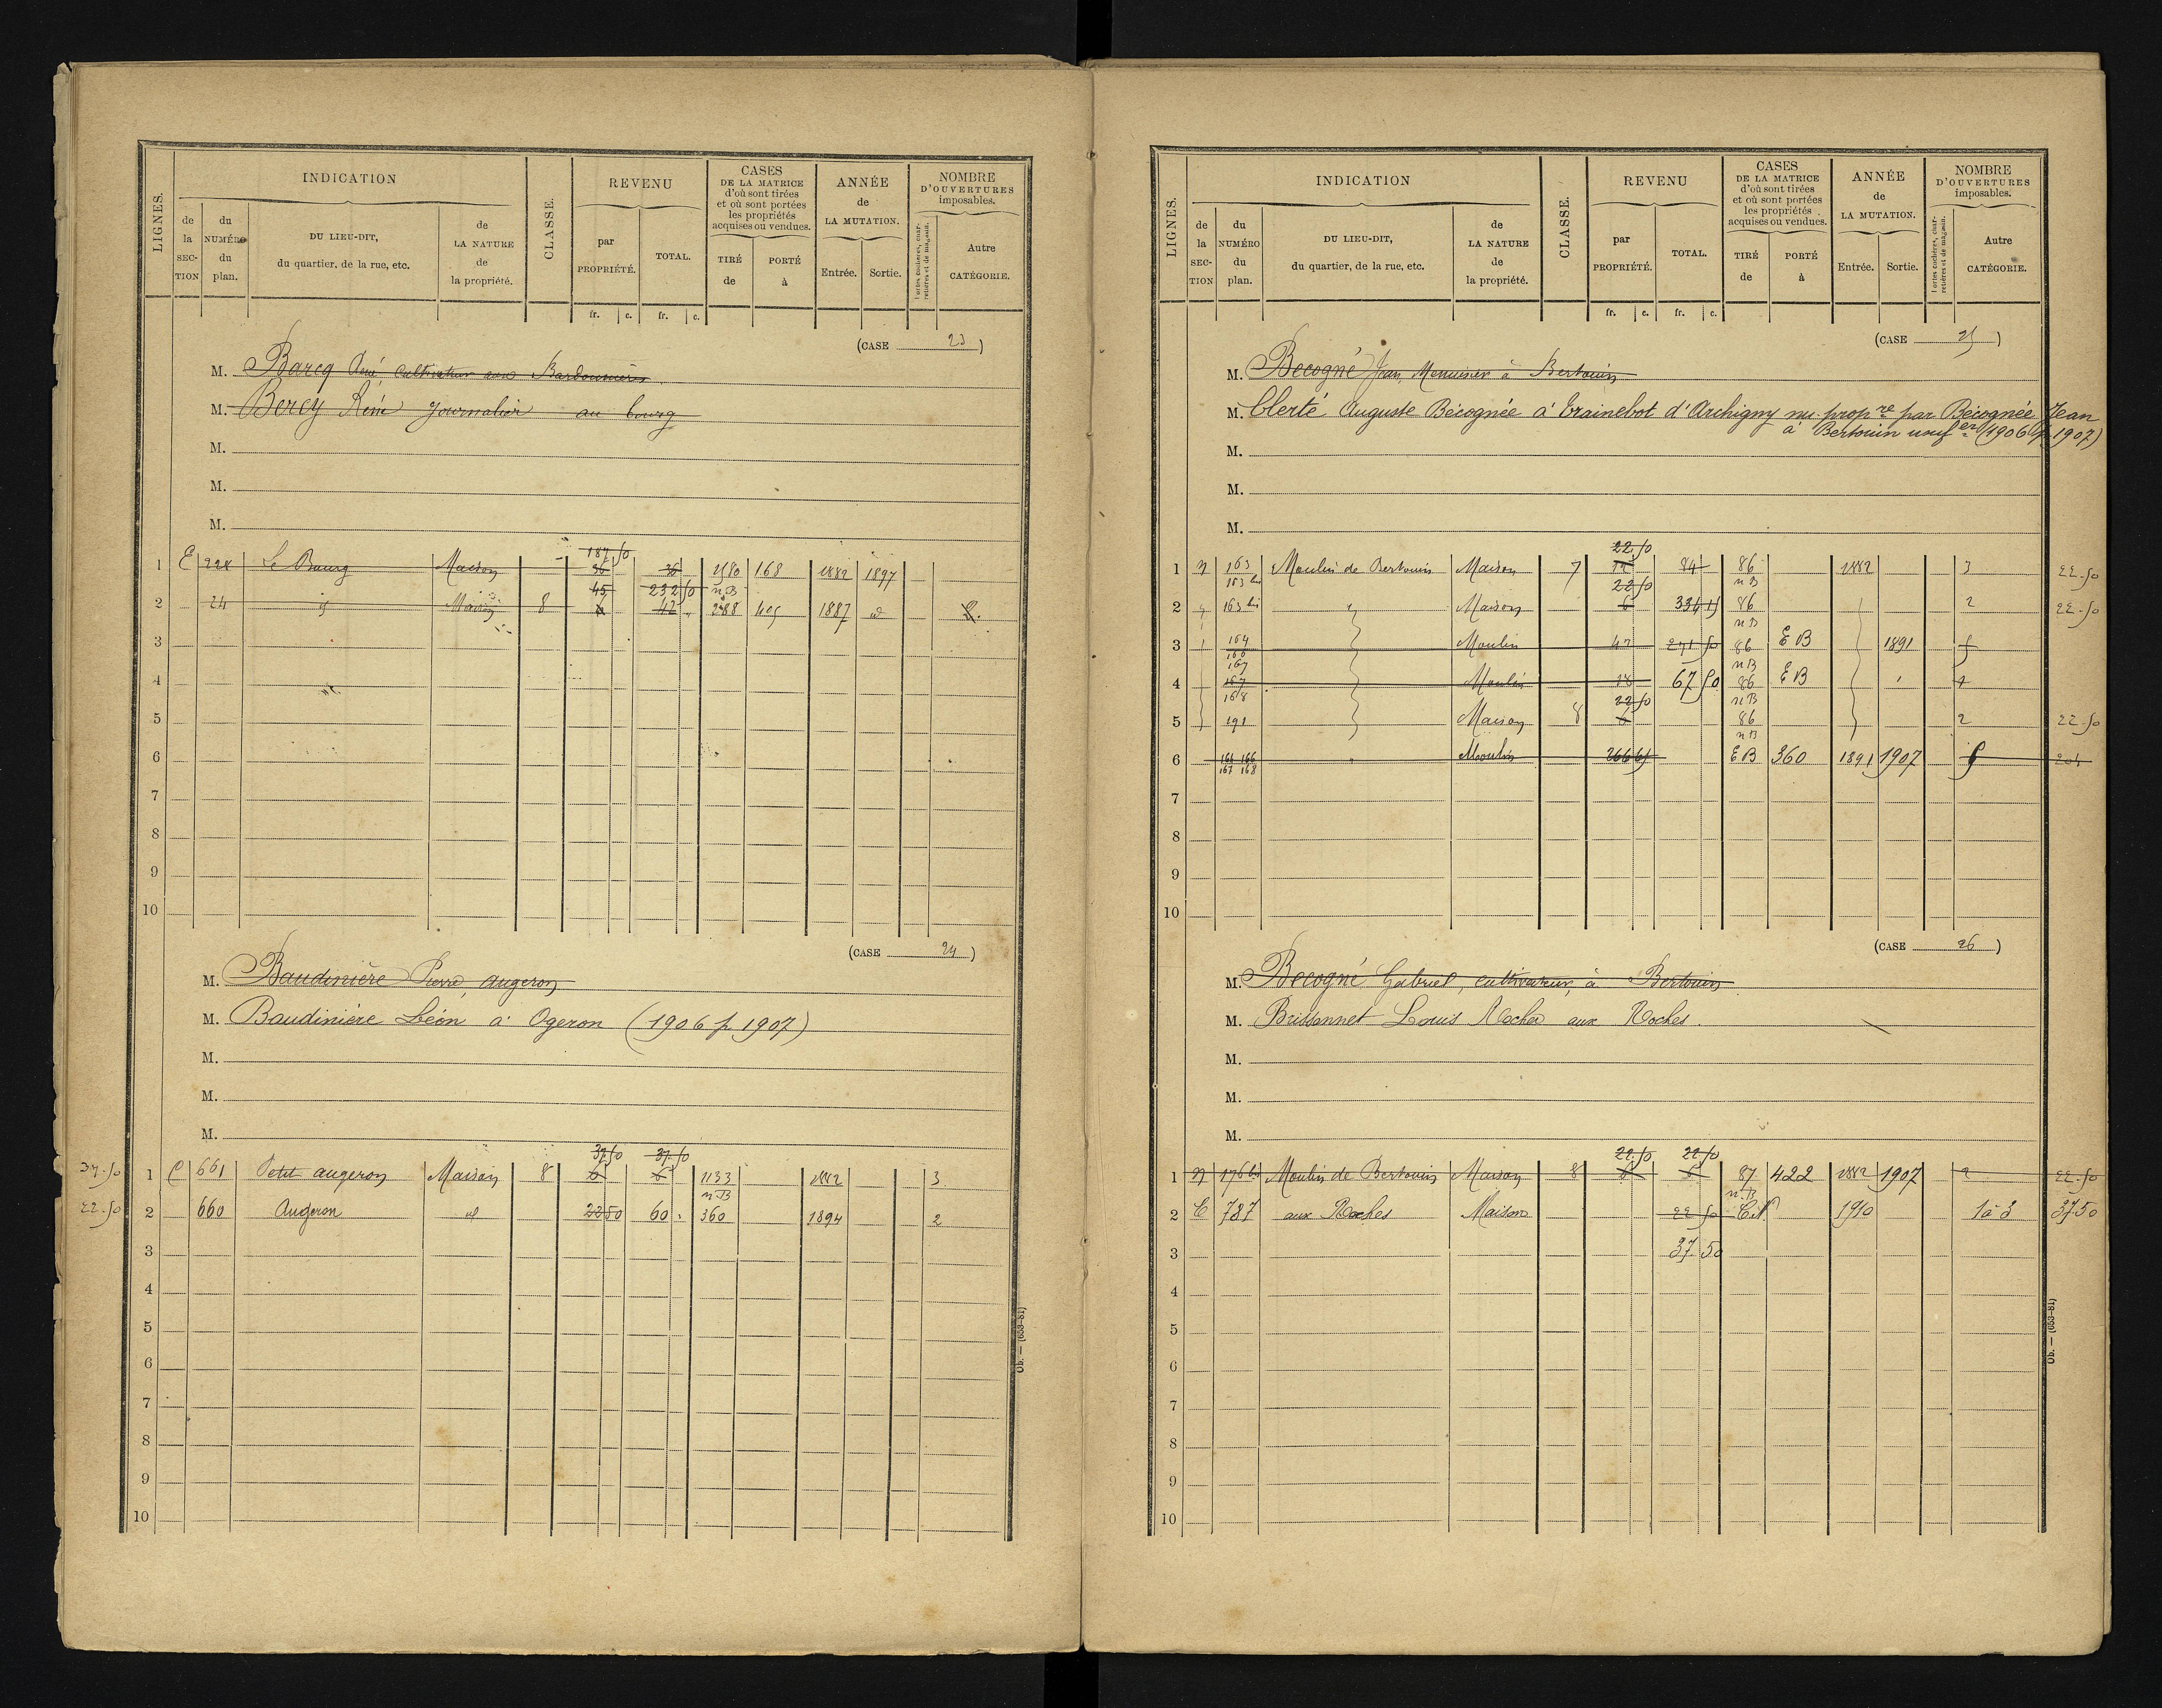 LIGNES.
INDICATION
de la SECTION
du NUMÉRO du plan.
DU LIEU-DIT, du quartier, de la rue, etc.
de LA NATURE de la propriété.
CLASSE.
REVENU
par PROPRIÉTÉ.
TOTAL.
fr. c. fr. c.
CASES DE LA MATRICE d'où sont tirées et où sont portées les propriétés acquises ou vendues.
TIRÉ de
PORTÉ à
ANNÉE de LA MUTATION.
Entrée. Sortie.
NOMBRE D'OUVERTURES imposables.
Portes cochères, charretières et de magasin.
Autre CATÉGORIE.
(CASE 23)
M. Barcq René cultivateur aux Bardonnières
M. Bercy René journalier au bourg
M.
M.
M.
187 50
1 E 228 Le Bourg Maison 36 36 2580 168 1882 1897
45 232 50 n.B
2 24 id Maison 8 6 42 288 405 1887 2.
3
4
5
6
7
8
9
10
(CASE 24)
M. Baudinière Pierre, augeron
M. Baudiniere Léon à Ogeron (1906 p 1907)
M.
M.
M.
37 50 37 50
37.50 1 C 661 Petit augeron Maison 8 6 6 1133 1882 3
n.B
22.50 2 660 Augeron id 22 50 60 . 360 1894 2
3
4
5
6
7
8
9
10
Ob. — (653-81)
LIGNES.
INDICATION
de la SECTION
du NUMÉRO du plan.
DU LIEU-DIT, du quartier, de la rue, etc.
de LA NATURE de la propriété.
CLASSE.
REVENU
par PROPRIÉTÉ.
TOTAL.
fr. c. fr. c.
CASES DE LA MATRICE d'où sont tirées et où sont portées les propriétés acquises ou vendues.
TIRÉ de
PORTÉ à
ANNÉE de LA MUTATION.
Entrée. Sortie.
NOMBRE D'OUVERTURES imposables.
Portes cochères, charretières et de magasin.
Autre CATÉGORIE.
(CASE 25)
M. Becogné Jean, Menuisier à Bertouin
M. Clerté Auguste Bécognée à Trainebot d'Archigny nu-propre par Bécognée Jean
à Bertouin usufer (1906 p 1907)
M.
M.
M.
22 50
1 163 Moulin de Bertouin Maison 7 84 86 1882 3 22.50
163 bis 22 50 n B
2 163 bis Maison 6 334 15 86 2 22.50
n B
3 164 Moulin 271 50 86 E B 1891
166
167 n B
4 167 Moulin 18 67 50 86 E B
168 22 50 n B
5 191 Maison 8 6 86 2 22.50
n B
6 164 166 Moulin 266 65 E B 360 1891 1907 204
167 168
7
8
9
10
(CASE 26)
M. Becogné Gabriel, cultivateur, à Bertouin
M. Brissonnet Louis Rocher aux Roches.
M.
M.
M.
22.50 22 50
1 176 bis Moulin de Bertouin Maison 8 6 6 87 422 1882 1907 2 22.50
n.B
2 C 787 aux Roches Maison 22 50 1910 1 à 3 37.50
3 37 50
4
5
6
7
8
9
10
Ob. — (653-81)